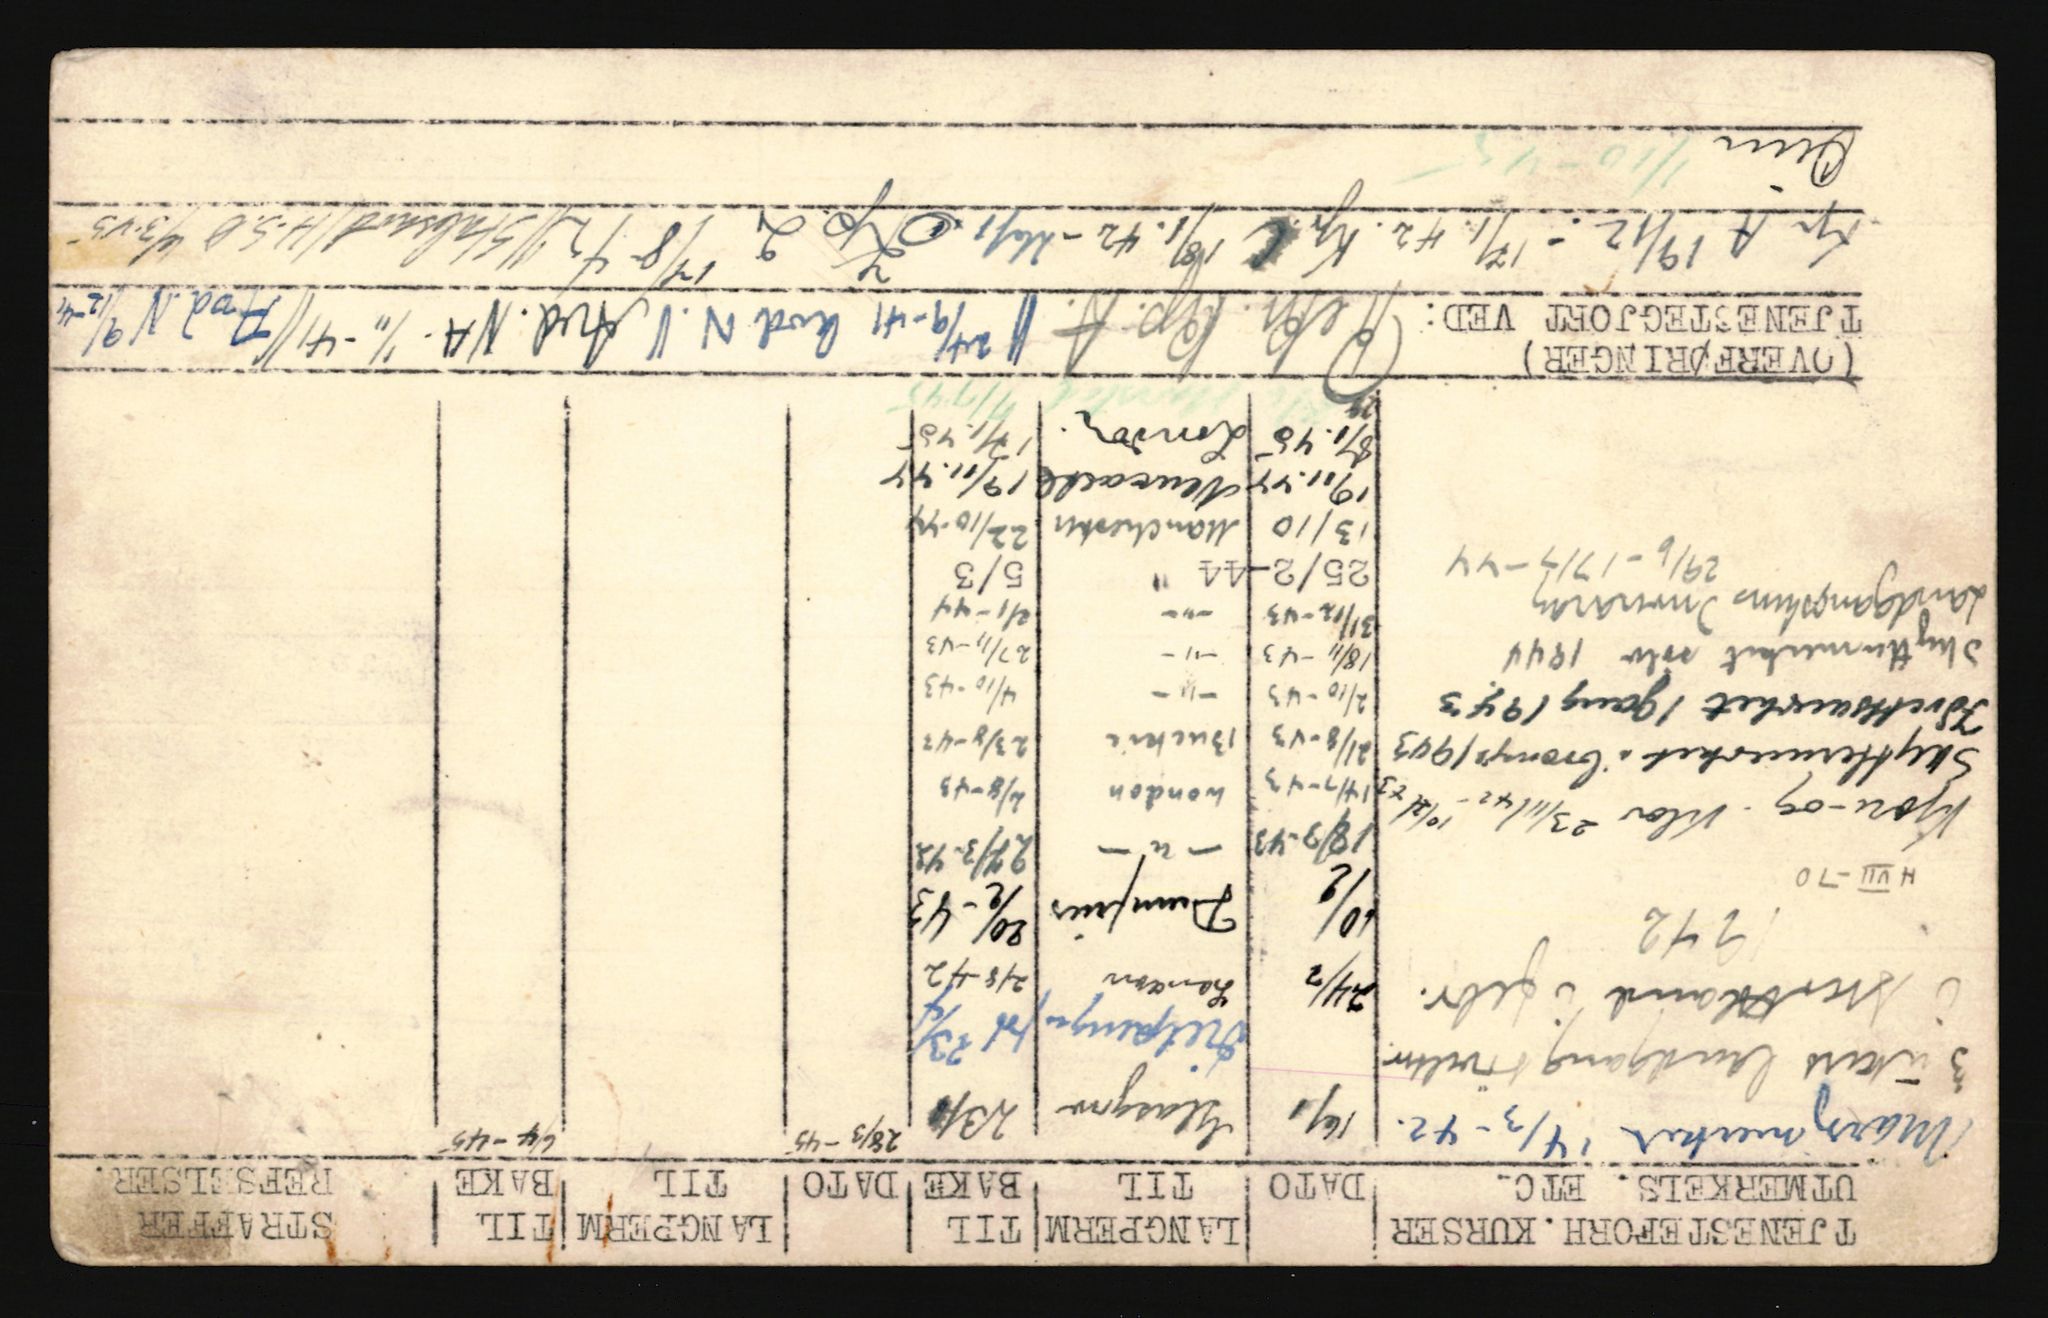 TJENESTEFORH. KURSER UTMERKELS. ETC.
DATO
LANGPERM TIL
TIL BAKE
DATO
LANGPERM TIL
TIL BAKE
STRAFFER REFSELSER.
Marsjmerket 14/3-42.
3 ukers landgang
i Skottland i febr.
1942
H VII-70
23/11 42 -
Skyttermerket i bronse 1943
Idrettsmerket 1 gang 1943
Skyttermerket sølv 1944
Landgangskurs Inveraray
29/6 - 17/7-44
16/1 Glasgow 23/1
23/4
24/7 London 2/8-42
10/2 Dumfries 20/2-43
18/3-43 -"- 27/3-43
14/7-43 London 2/8-43
21/8-43 Buckie 23/8-43
2/10-43 -"- 4/10-43
18/11-43 -"- 27/11-43
31/12-43 -"- 2/1-44
25/2-44 " 5/3
13/10 Manchester 22/10-44
19/11.44 19/11.44
8/1.45 London. 17/1.45
28/3-45
6/4-45
(OVERFØRINGER)
TJENESTEGJORT VED:
Rekr. Kp. A. // 24/9-41 Avd N. // Avd. NA. 1/11-41 // Avd N 9/12-41
Kp. A 19/12.- 17/1.42. Kp. C 18/1.42 - Kp. 2 17/8-42 //
1/10-45